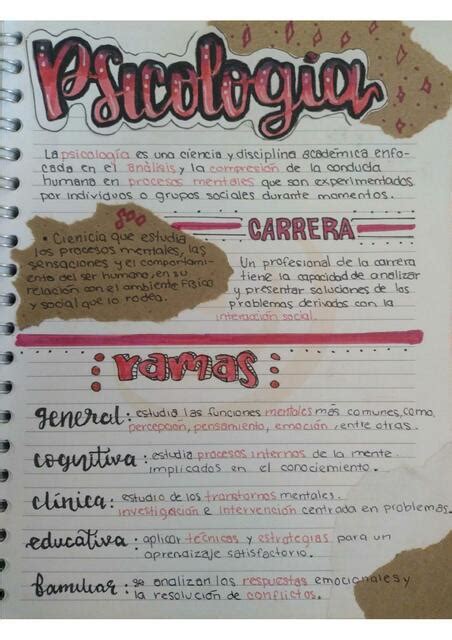 Psicología
La psicología es una ciencia y disciplina académica enfo-
cada en el análisis y la compresión de la conducta
humana en procesos mentales que son experimentados
por individuos o grupos sociales durante momentos.
• Cienicia que estudia
los procesos mentales, las
sensaciones y el comportami-
ento del ser humano, en su
relación con el ambiente físico
y social que lo rodea.
CARRERA
Un profesional de la carrera
tiene la capacidad de analizar
y presentar soluciones de los
problemas derivados con la
interacción social.
ramas
general: estudia las funciones mentales más comunes, como,
percepción, pensamiento, emoción, entre otras.
cognitiva: estudia procesos internos de la mente
implicados en el conociemiento.
clínica: estudio de los transtornos mentales.
investigación e intervención centrada en problemas.
educativa: aplicar técnicas y estrategias para un
aprendizaje satisfactorio.
familiar: se analizan las respuestas emocionales y
la resolución de conflictos.